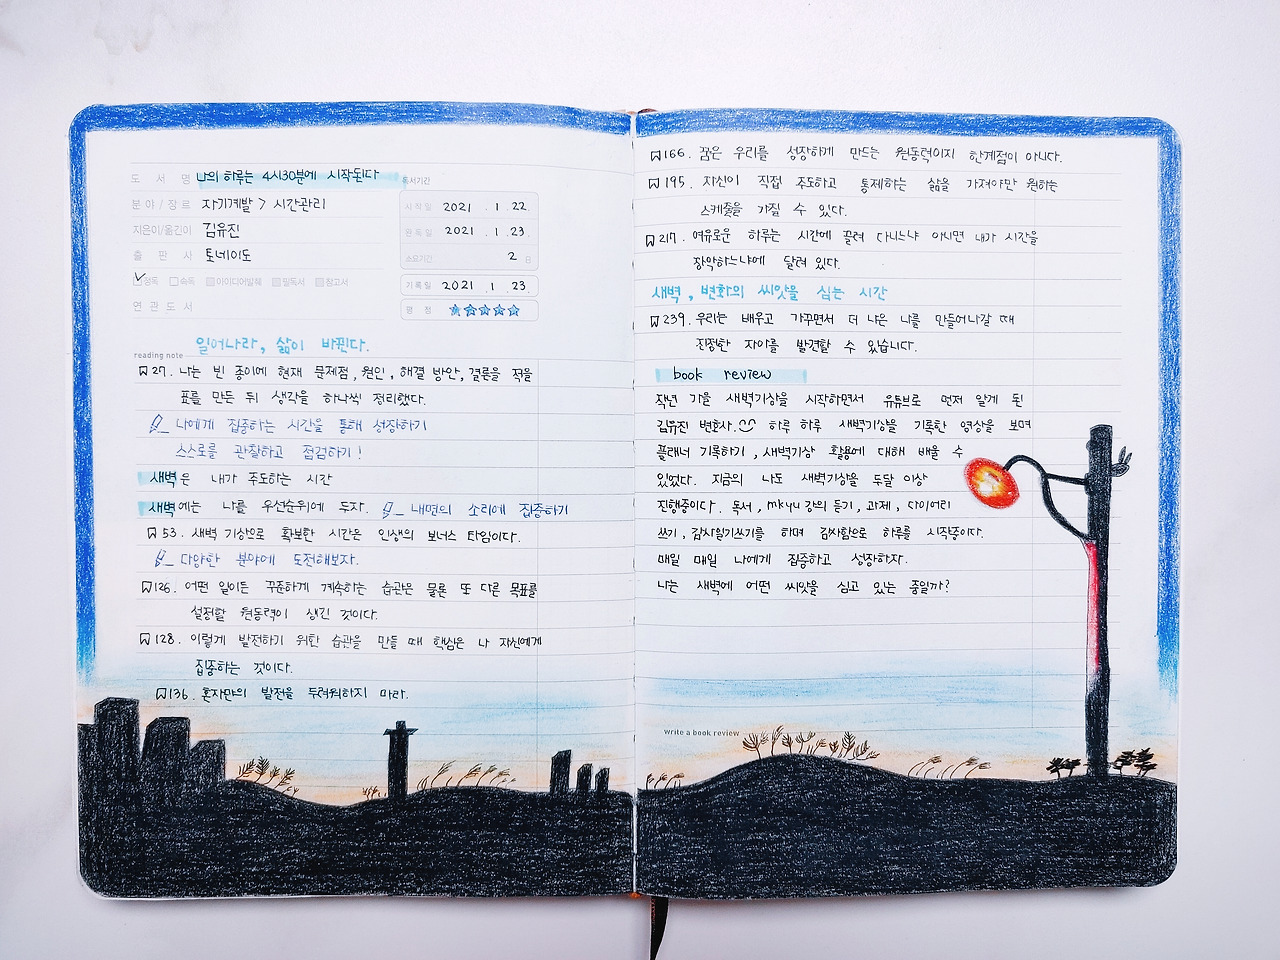 도 서 명 나의 하루는 4시30분에 시작된다
독서기간
분야/장르 자기계발 > 시간관리
시작일 2021 . 1 . 22.
지은이/옮긴이 김유진
완독일 2021 . 1 . 23.
출 판 사 토네이도
소요기간 2 일
정독 속독 아이디어발췌 필독서 참고서
기록일 2021 . 1 . 23.
연 관 도 서
평 점 ★★★★★
일어나라, 삶이 바뀐다.
reading note
27. 나는 빈 종이에 현재 문제점, 원인, 해결 방안, 결론을 적을
표를 만든 뒤 생각을 하나씩 정리했다.
나에게 집중하는 시간을 통해 성장하기
스스로를 관찰하고 점검하기!
새벽은 내가 주도하는 시간
새벽에는 나를 우선순위에 두자. 내면의 소리에 집중하기
53. 새벽 기상으로 확보한 시간은 인생의 보너스 타임이다.
다양한 분야에 도전해보자.
126. 어떤 일이든 꾸준하게 계속하는 습관은 물론 또 다른 목표를
설정할 원동력이 생긴 것이다.
128. 이렇게 발전하기 위한 습관을 만들 때 핵심은 나 자신에게
집중하는 것이다.
136. 혼자만의 발전을 두려워하지 마라.
166. 꿈은 우리를 성장하게 만드는 원동력이지 한계점이 아니다.
195. 자신이 직접 주도하고 통제하는 삶을 가져야만 원하는
스케줄을 가질 수 있다.
217. 여유로운 하루는 시간에 끌려 다니느냐 아니면 내가 시간을
장악하느냐에 달려 있다.
새벽, 변화의 씨앗을 심는 시간
239. 우리는 배우고 가꾸면서 더 나은 나를 만들어나갈 때
진정한 자아를 발견할 수 있습니다.
book review
작년 가을 새벽기상을 시작하면서 유튜브로 먼저 알게 된
김유진 변호사. 하루 하루 새벽기상을 기록한 영상을 보며
플래너 기록하기, 새벽기상 활용에 대해 배울 수
있었다. 지금의 나도 새벽기상을 두달 이상
진행중이다. 독서, mkyu 강의 듣기, 과제, 다이어리
쓰기, 감사일기쓰기를 하며 감사함으로 하루를 시작중이다.
매일 매일 나에게 집중하고 성장하자.
나는 새벽에 어떤 씨앗을 심고 있는 중일까?
write a book review